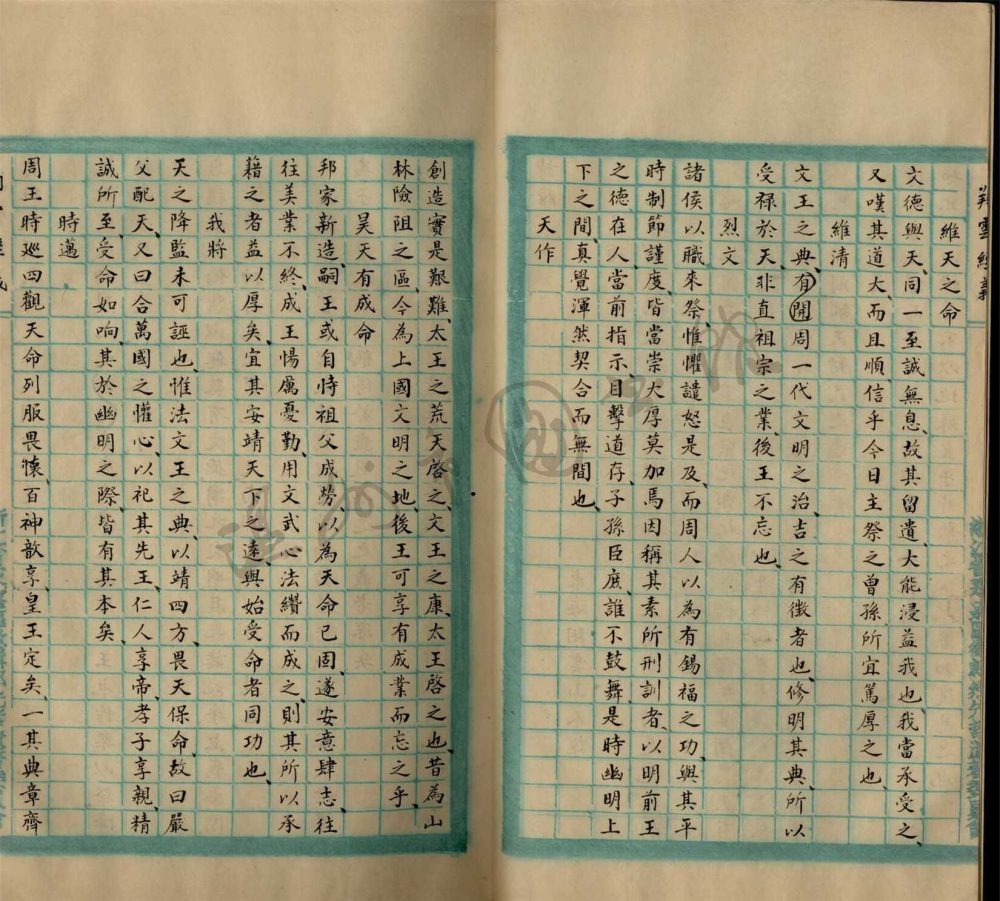 維天之命
文德與天同一至誠無息、故其留遺大能浸益我也、我當承受之、
又嘆其道大、而且順、信乎今日主祭之曾孫所宜篤厚之也、
維清
文王之典、有開周一代文明之治、吉之有徵者也、修明其典、所以
受祿於天、非直祖宗之業、後王不忘也、
烈文
諸侯以職來祭、惟懼譴怒是及、而周人以為有錫福之功、與其平
時制節謹度、皆當崇大厚莫加焉、因稱其素所刑訓者、以明前王
之德在人、當前指示、目擊道存、子孫臣庶、誰不鼓舞、是時幽明上
下之間、真覺渾然契合而無間也、
天作
創造實是艱難、太王之荒、天啓之、文王之康、太王啓之也、昔為山
林險阻之區、今為上國文明之地、後王可享有成業而忘之乎、
昊天有成命
邦家新造、嗣王或自恃祖父成勞、以為天命已固、遂安意肆志、往
往美業不終、成王惕厲憂勤、用文武心法纘而成之、則其所以承
藉之者益以厚矣、宜其安靖天下之遠、與始受命者同功也、
我將
天之降監未可誣也、惟法文王之典、以靖四方、畏天保命、故曰嚴
父配天、又曰合萬國之懽心、以祀其先王、仁人享帝、孝子享親、精
誠所至、受命如响、其於幽明之際、皆有其本矣、
時邁
周王時巡四觀、天命列服畏懷、百神歆享、皇王定矣、一其典章、齊